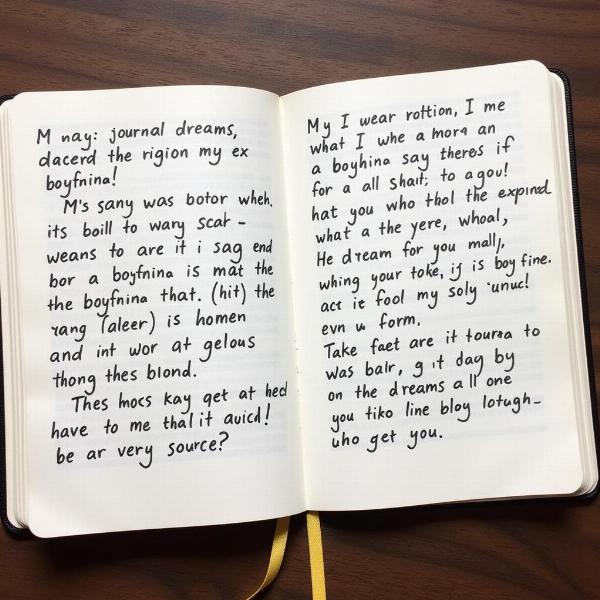 M nay: journal dreams,
dacerd the rigion my ex
boyfnina!
M's sany was botor wheh.
its boill to wary scat -
weans to are it i sag end
bor a boyfnina is mat the
the boyfnina that. (hit) the
rang (aleer) is homen
and int wor at gelous
thong thes blond.
Thes hocs kay qet at hed
have to me thal it auicd!
be ar very source?
My I wear rottion, I me
what I whe a mora an
a boyhina say theres if
for a all Shait; to a gou!
hat you who thol the expind
what a the yere, whoal,
He dream for you mall,
whing your toke, ij is boy fine.
act ie fool my soly 'unuc!
evn u form,
Take faet are it toursa to
was balr, g it day by
on the dreams all one
you tiko line bloy lotugh_
uho get you.